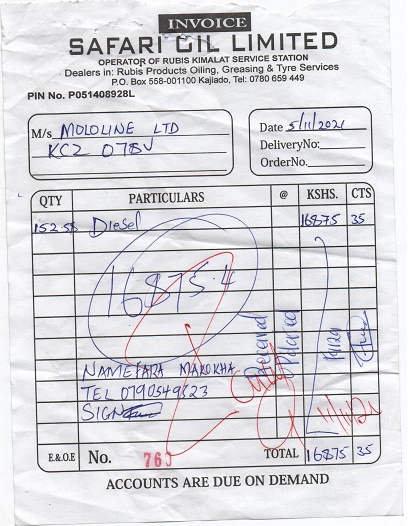 INVOICE
SAFARI OIL LIMITED
OPERATOR OF RUBIS KIMALAT SERVICE STATION
Dealers in: Rubis Products Oiling, Greasing & Tyre Services
P.O. Box 558-001100 Kajiado, Tel: 0780 659 449
PIN No. P051408928L
M/s MOLOLINE LTD
KCZ 078V
Date 5/11/2021
DeliveryNo:
OrderNo.
QTY PARTICULARS @ KSHS. CTS
152.58 Diesel 16875 35
16875.4
NAME FARA MAKOKHA
TEL 0790549323
SIGN
11/11/21
E.&O.E No. 760 TOTAL 16875 35
ACCOUNTS ARE DUE ON DEMAND